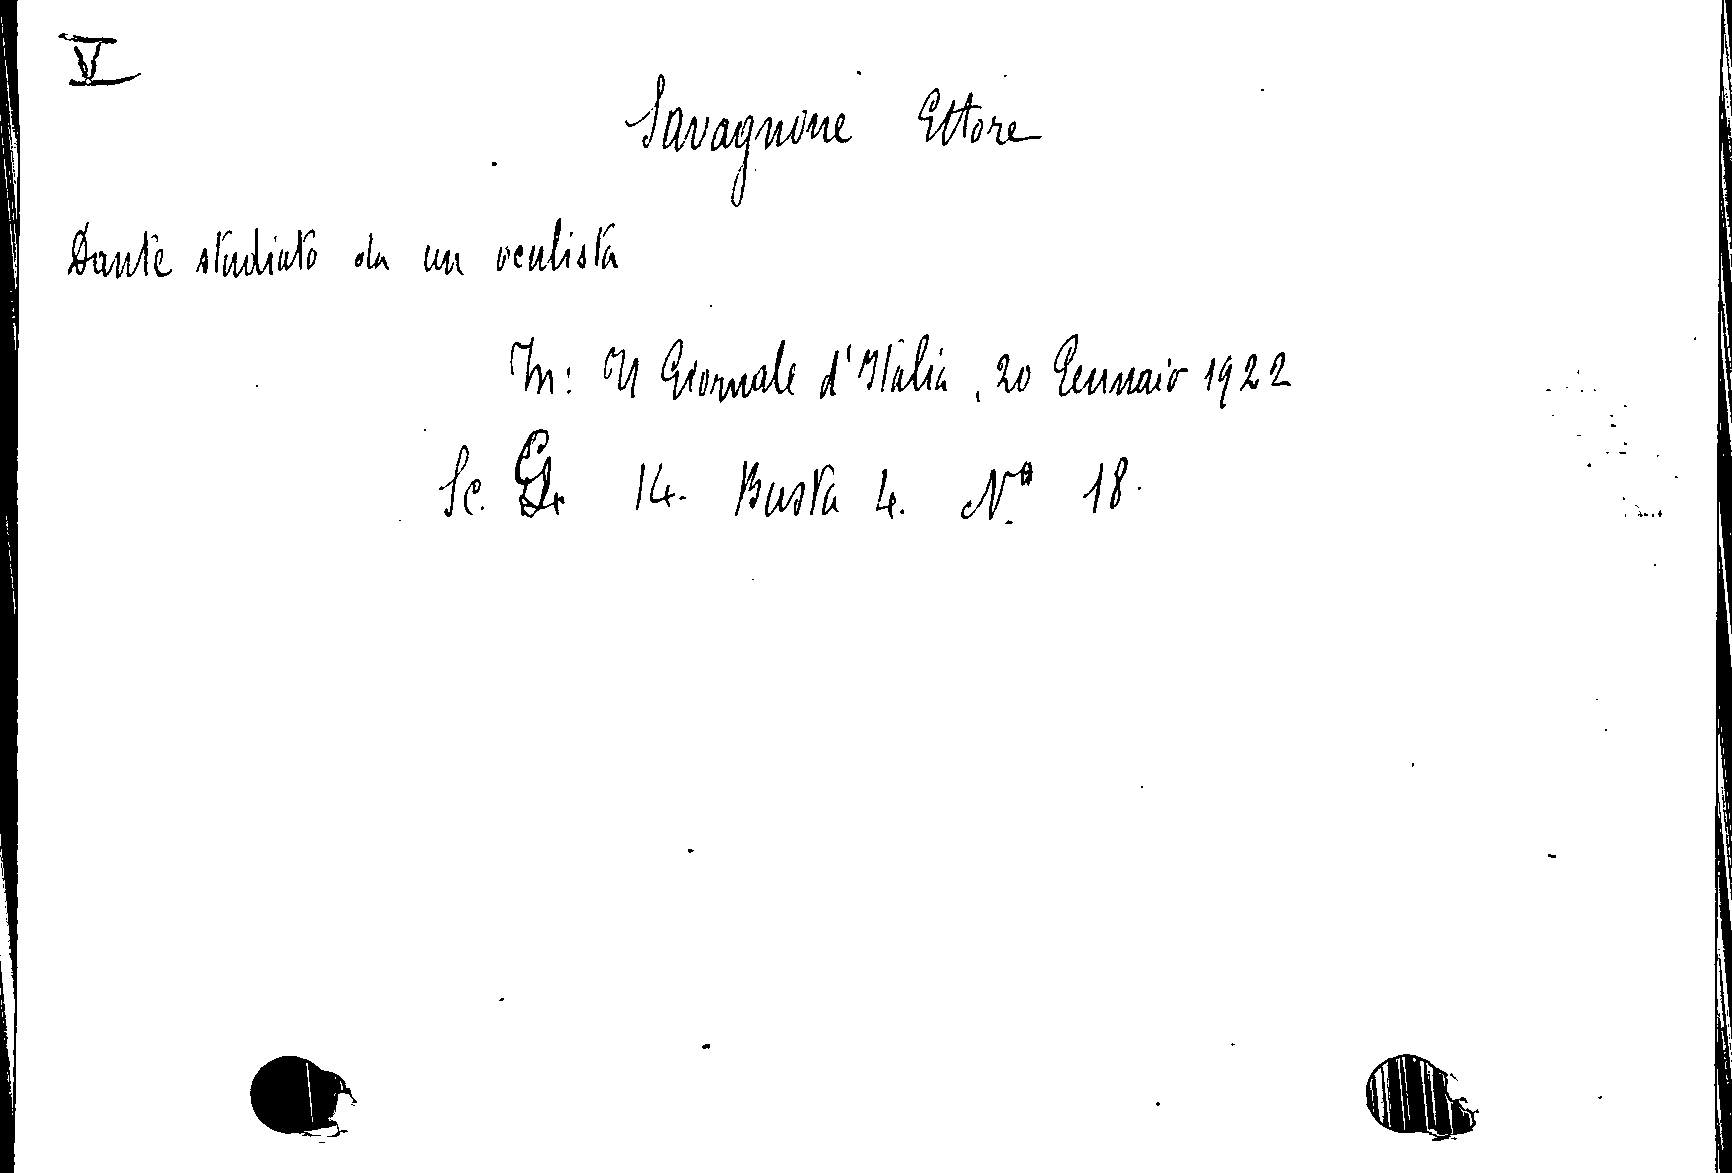 V
Savagnone Ettore
Dante studiato da un oculista
In: Il Giornale d'Italia, 20 Gennaio 1922
Sc. 14. Busta 4. Nº 18.